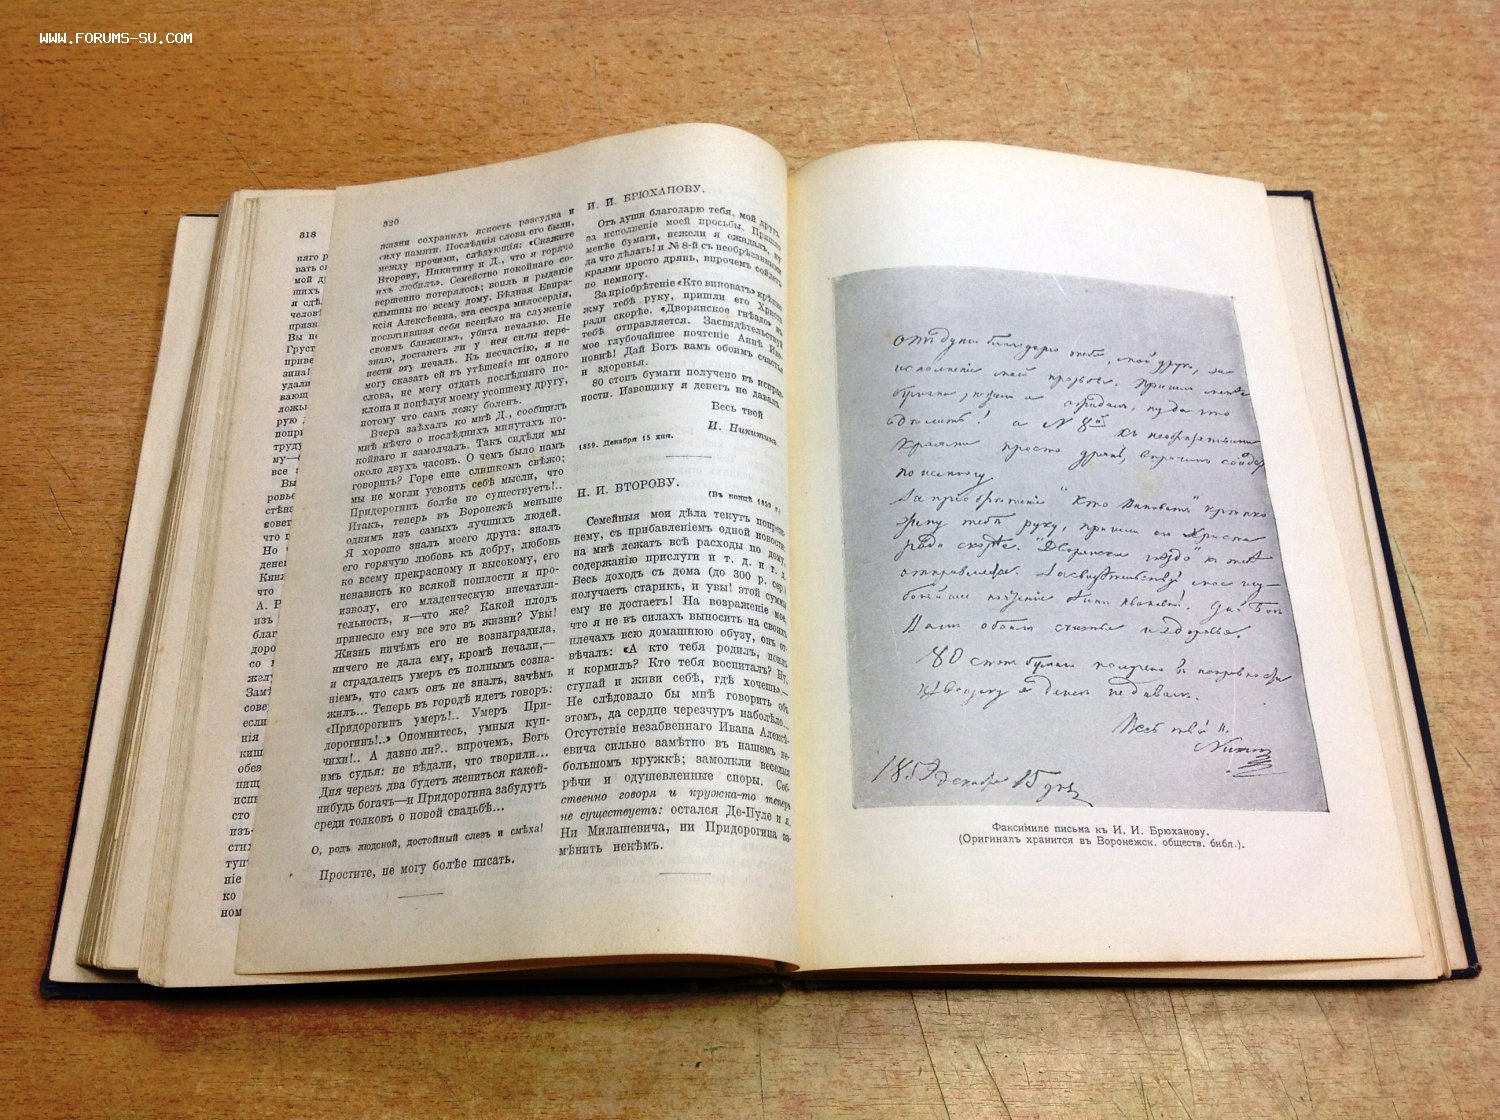 WWW.FORUMS-SU.COM
318
няго р
вать сл
мой др
шихъ
я сдѣ
человѣ
призн
Вы не
Груст
приве
зина!
удали
вающ
ложы
рую
попри
труду
му—
все
Вы
ровье
стѣна
ковет
что п
Но
денег
Книж
что
А. Р
изъ
благ
доро
со
желу
Замѣ
сове
если
нія
кищ
обез
пищ
испь
сто
изъ-
стих
туп
ніе
ко
ном
320
жизни сохранилъ ясность разсудка и
силу памяти. Послѣднія слова его были,
между прочими, слѣдующія: «Скажите
Второву, Никитину и Д., что я горячо
ихъ любилъ». Семейство покойнаго со-
вершенно потерялось; вопль и рыданіе
слышны по всему дому. Бѣдная Евпра-
ксія Алексѣевна, эта сестра милосердія,
посвятившая себя всецѣло на служеніе
своимъ ближнимъ, убита печалью. Не
знаю, достанетъ ли у нея силы пере-
нести эту печаль. Къ несчастію, я не
могу сказать ей въ утѣшеніе ни одного
слова, не могу отдать послѣдняго по-
клона и поцѣлуя моему усопшему другу,
потому что самъ лежу боленъ.
Вчера заѣхалъ ко мнѣ Д., сообщилъ
мнѣ нѣчто о послѣднихъ минутахъ по-
койнаго и замолчалъ. Такъ сидѣли мы
около двухъ часовъ. О чемъ было намъ
говорить? Горе еще слишкомъ свѣжо;
мы не могли усвоить себѣ мысли, что
Придорогинъ болѣе не существуетъ!..
Итакъ, теперь въ Воронежѣ меньше
однимъ изъ самыхъ лучшихъ людей.
Я хорошо зналъ моего друга: зналъ
его горячую любовь къ добру, любовь
ко всему прекрасному и высокому, его
ненависть ко всякой пошлости и про-
изволу, его младенческую впечатли-
тельность, и—что же? Какой плодъ
принесло ему все это въ жизни? Увы!
Жизнь ничѣмъ его не вознаградила,
ничего не дала ему, кромѣ печали,—
и страдалецъ умеръ съ полнымъ созна-
ніемъ, что самъ онъ не зналъ, зачѣмъ
жилъ... Теперь въ городѣ идетъ говоръ:
«Придорогинъ умеръ!.. Умеръ При-
дорогинъ!..» Опомнитесь, умныя куп-
чихи!.. А давно ли?.. впрочемъ, Богъ
имъ судья: не вѣдали, что творили...
Дня черезъ два будетъ жениться какой-
нибудь богачъ—и Придорогина забудутъ
среди толковъ о новой свадьбѣ...
О, родъ людской, достойный слезъ и смѣха!
Простите, не могу болѣе писать.
И. И. БРЮХАНОВУ.
Отъ души благодарю тебя, мой другъ,
за исполненіе моей просьбы. Пришло
менѣе бумаги, нежели я ожидалъ, ну
да что дѣлать! и № 8-й съ необрѣзанными
краями просто дрянь, впрочемъ сойдетъ
по немногу.
За пріобрѣтеніе «Кто виноватъ» крѣпко
жму тебѣ руку, пришли его Христа
ради скорѣе. «Дворянское гнѣздо» къ
тебѣ отправляется. Засвидѣтельствуй
мое глубочайшее почтеніе Аннѣ Ива-
новнѣ! Дай Богъ вамъ обоимъ счастья
и здоровья.
80 стопъ бумаги получено въ исправ-
ности. Извощику я денегъ не давалъ.
Весь твой
И. Никитинъ.
1859. Декабря 15 дня.
Н. И. ВТОРОВУ.
(Въ концѣ 1859 г.)
Семейныя мои дѣла текутъ попреж-
нему, съ прибавленіемъ одной новости:
на мнѣ лежатъ всѣ расходы по дому,
содержанію прислуги и т. д. и т. д.
Весь доходъ съ дома (до 300 р. сер.)
получаетъ старикъ, и увы! этой суммы
ему не достаетъ! На возраженіе мое,
что я не въ силахъ выносить на своихъ
плечахъ всю домашнюю обузу, онъ от-
вѣчалъ: «А кто тебя родилъ, поилъ
и кормилъ? Кто тебя воспиталъ? Ну,
ступай и живи себѣ, гдѣ хочешь»...
Не слѣдовало бы мнѣ говорить объ
этомъ, да сердце черезчуръ наболѣло...
Отсутствіе незабвеннаго Ивана Алексѣ-
евича сильно замѣтно въ нашемъ не-
большомъ кружкѣ; замолкли веселыя
рѣчи и одушевленные споры. Соб-
ственно говоря и кружка-то теперь
не существуетъ: остался Де-Пуле и я.
Ни Милашевича, ни Придорогина за-
мѣнить некѣмъ.
Отъ души благодарю тебя, мой другъ, за
исполненіе моей просьбы. Пришло менѣе
бумаги, нежели я ожидалъ, ну да что
дѣлать! а № 8й съ необрѣзанными
краями просто дрянь, впрочемъ сойдетъ
по немногу
За пріобрѣтеніе "Кто виноватъ" крѣпко
жму тебѣ руку, пришли его Христа
ради скорѣе. "Дворянское гнѣздо" къ тебѣ
отправляется. Засвидѣтельствуй мое глу-
бочайшее почтеніе Аннѣ Ивановнѣ! Дай Богъ
Вамъ обоимъ счастья и здоровья.
80 стопъ бумаги получено въ исправности
Извощику я денегъ не давалъ.
Весь твой И.
Никитинъ
1859 декабря 15 дня
Факсимиле письма къ И. И. Брюханову.
(Оригиналъ хранится въ Воронежск. обществ. библ.).